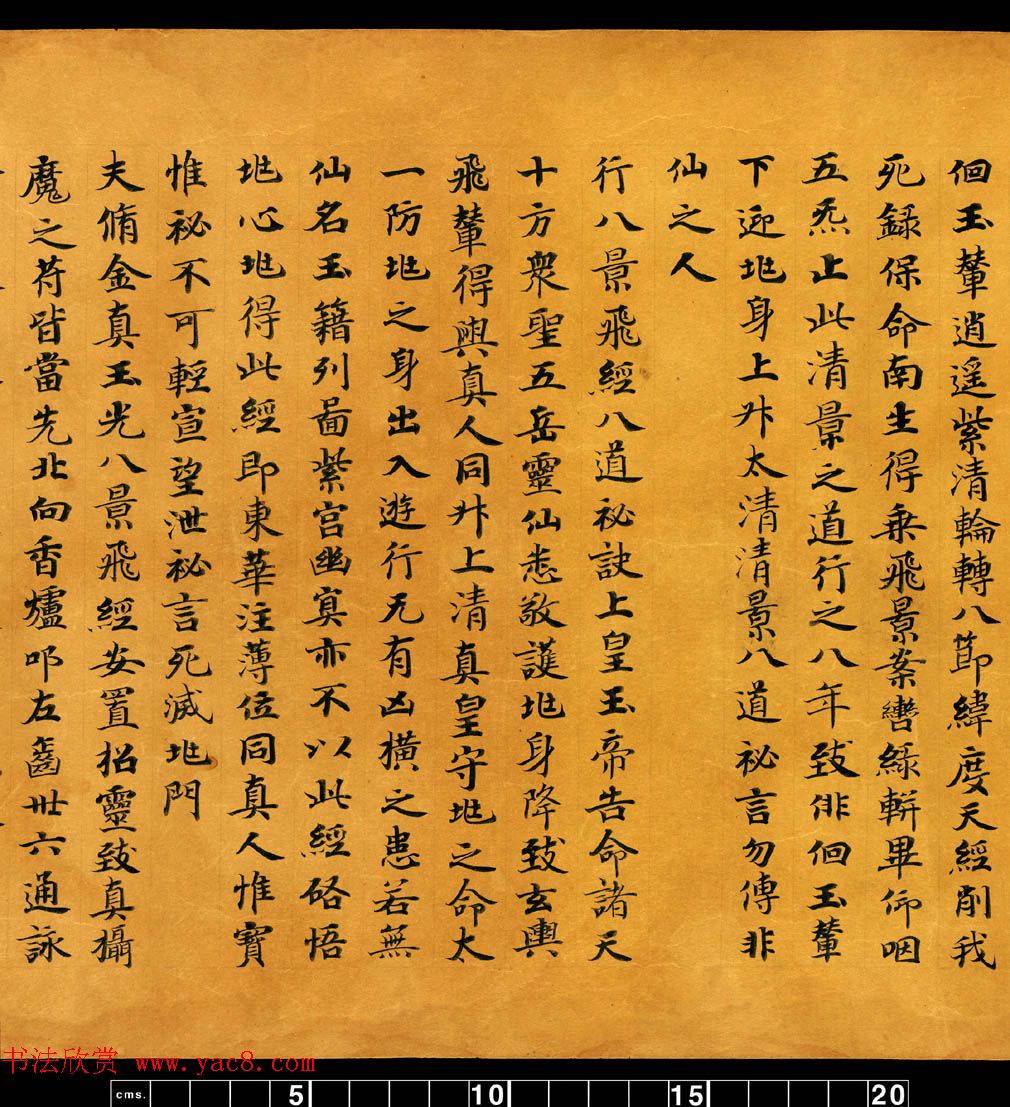 佪玉輦逍遥紫清輪轉八節緯度天經削我
死録保命南生得乗飛景案轡緑軿畢仰咽
五炁止此清景之道行之八年致俳佪玉輦
下迎地身上升太清清景八道祕言勿傳非
仙之人
行八景飛經八道祕訣上皇玉帝告命諸天
十方衆聖五岳靈仙悉敬護地身降致玄輿
飛輦得與真人同升上清真皇守地之命太
一防地之身出入遊行无有凶横之患若無
仙名玉籍列啚紫宫幽冥亦不以此經啓悟
地心地得此經即東華注薄位同真人惟寳
惟祕不可輕宣望泄祕言死滅地門
夫脩金真玉光八景飛經安置招靈致真攝
魔之苻皆當先北向香爐叩左齒卅六通詠
书法欣赏 www.yac8.com
cms. 5 10 15 20